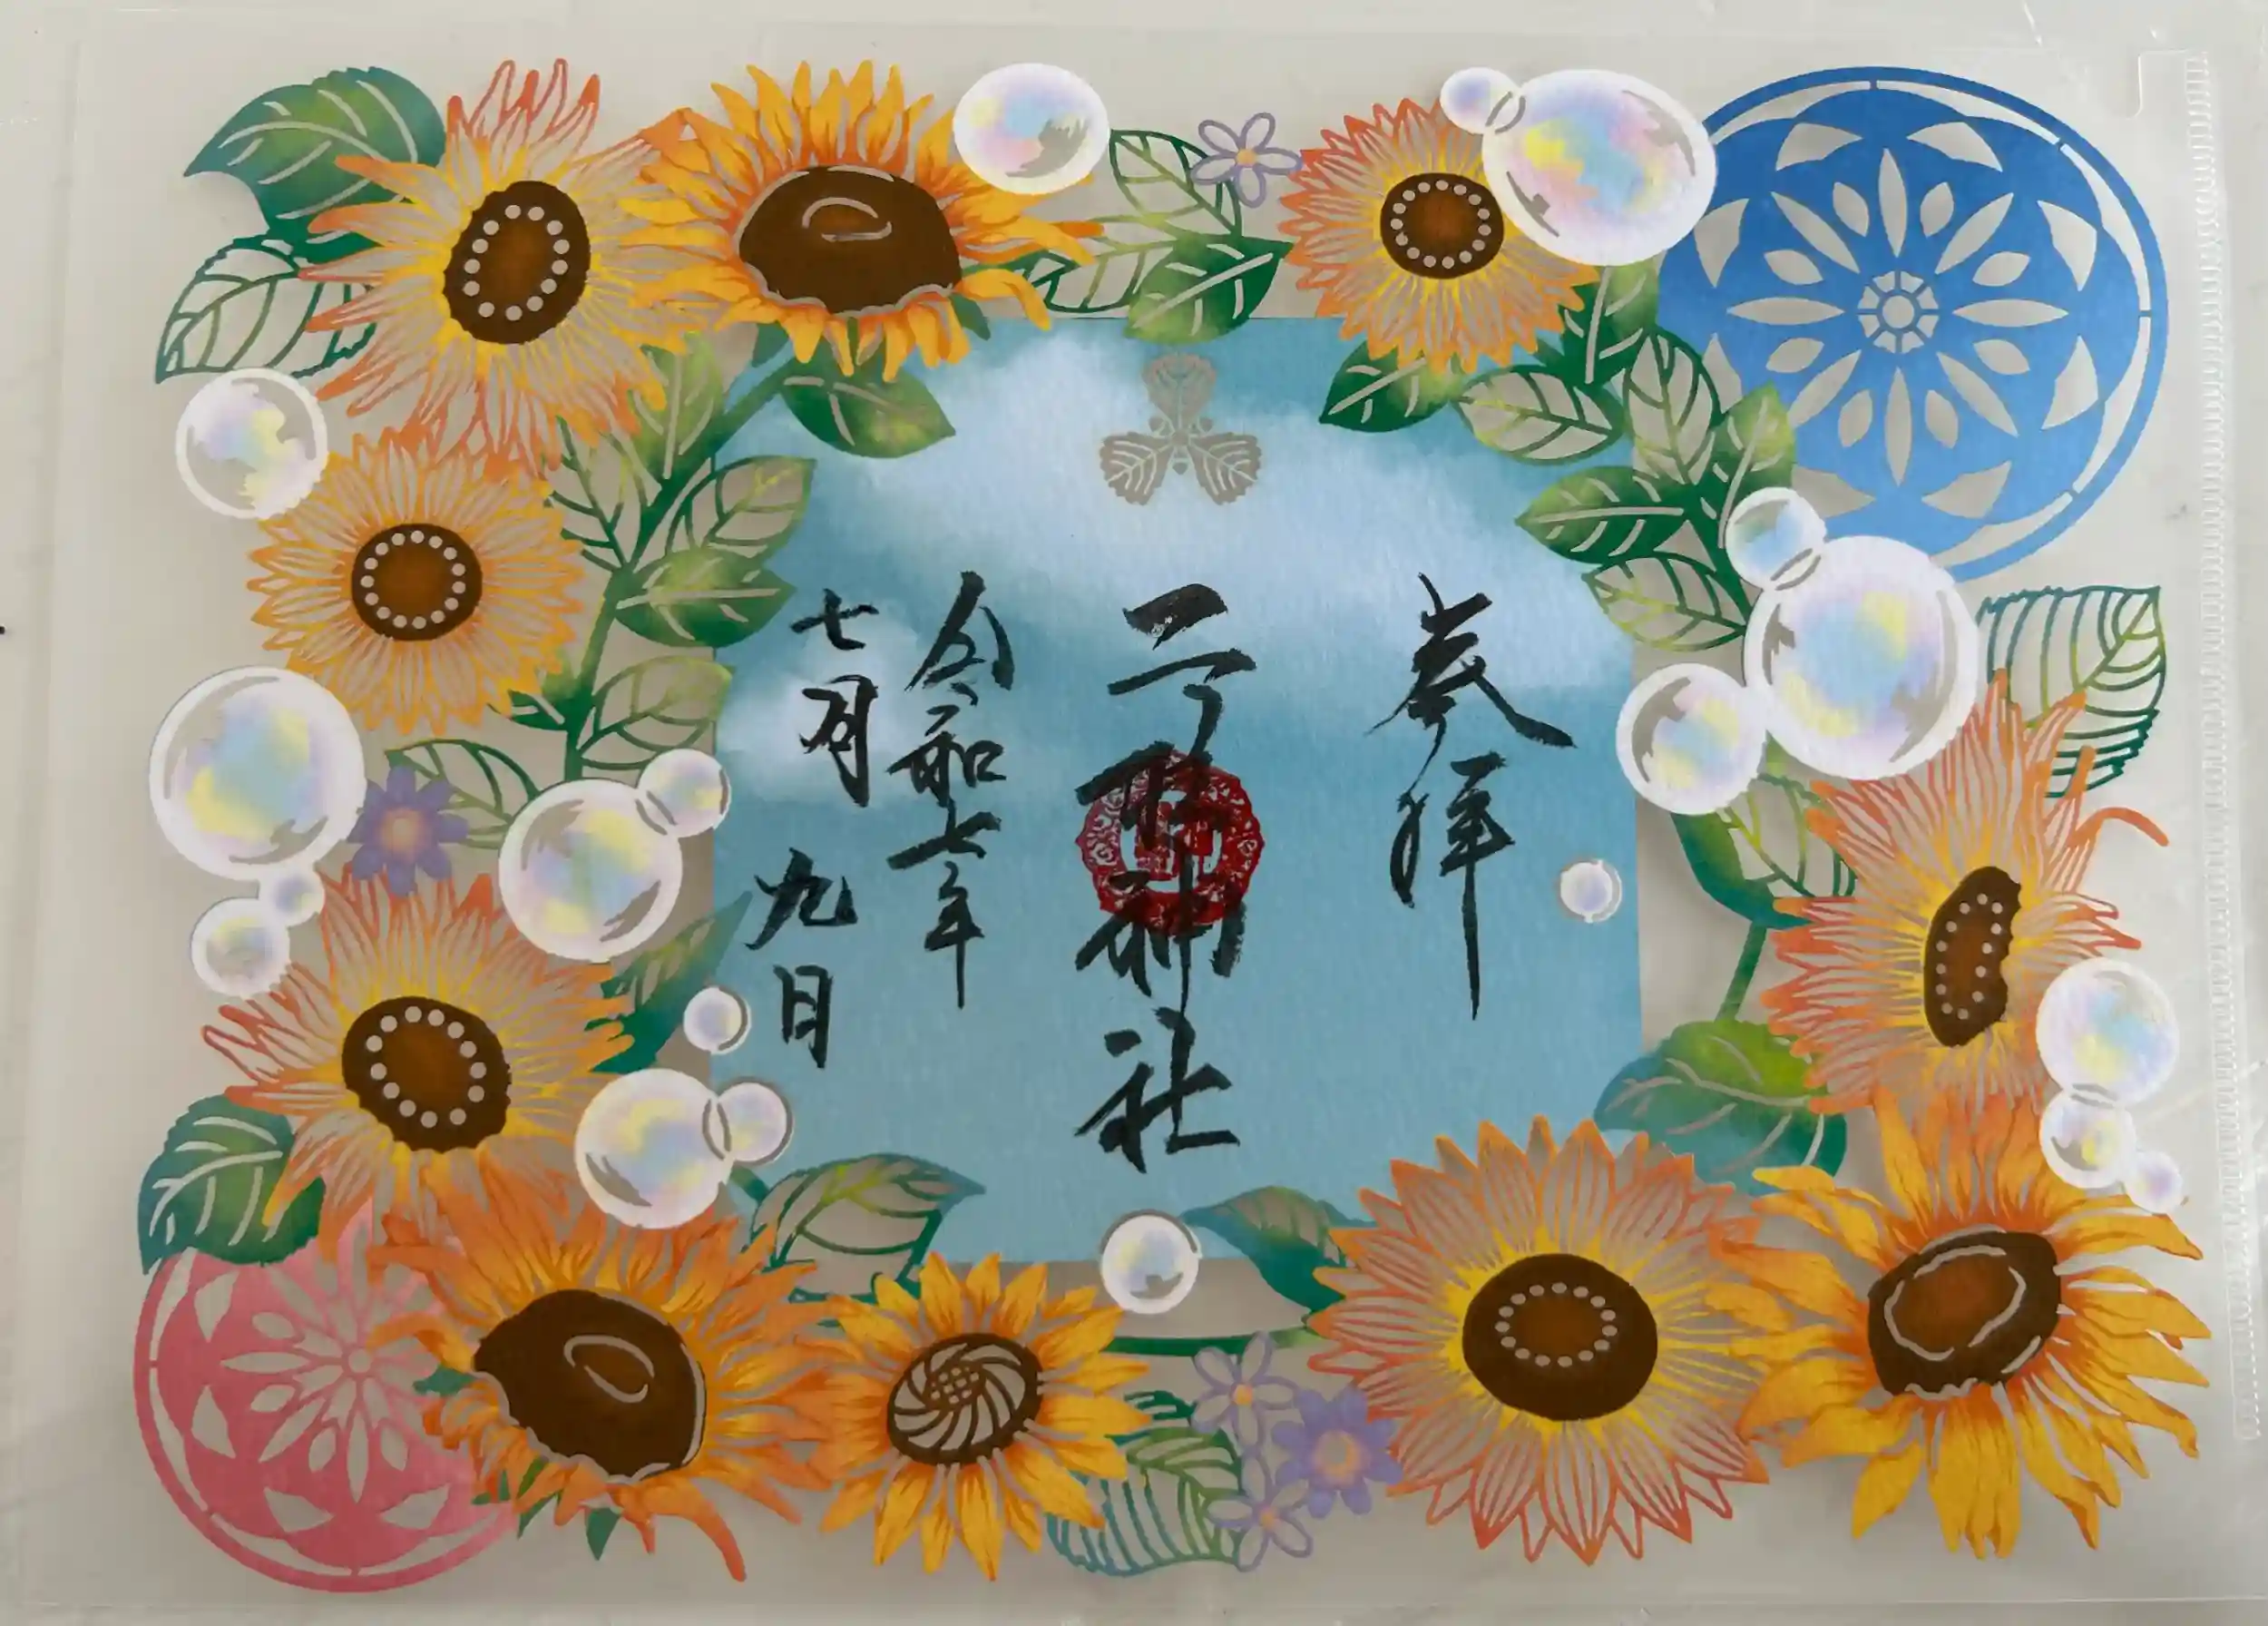 奉拝
二柱神社
令和七年
七月九日